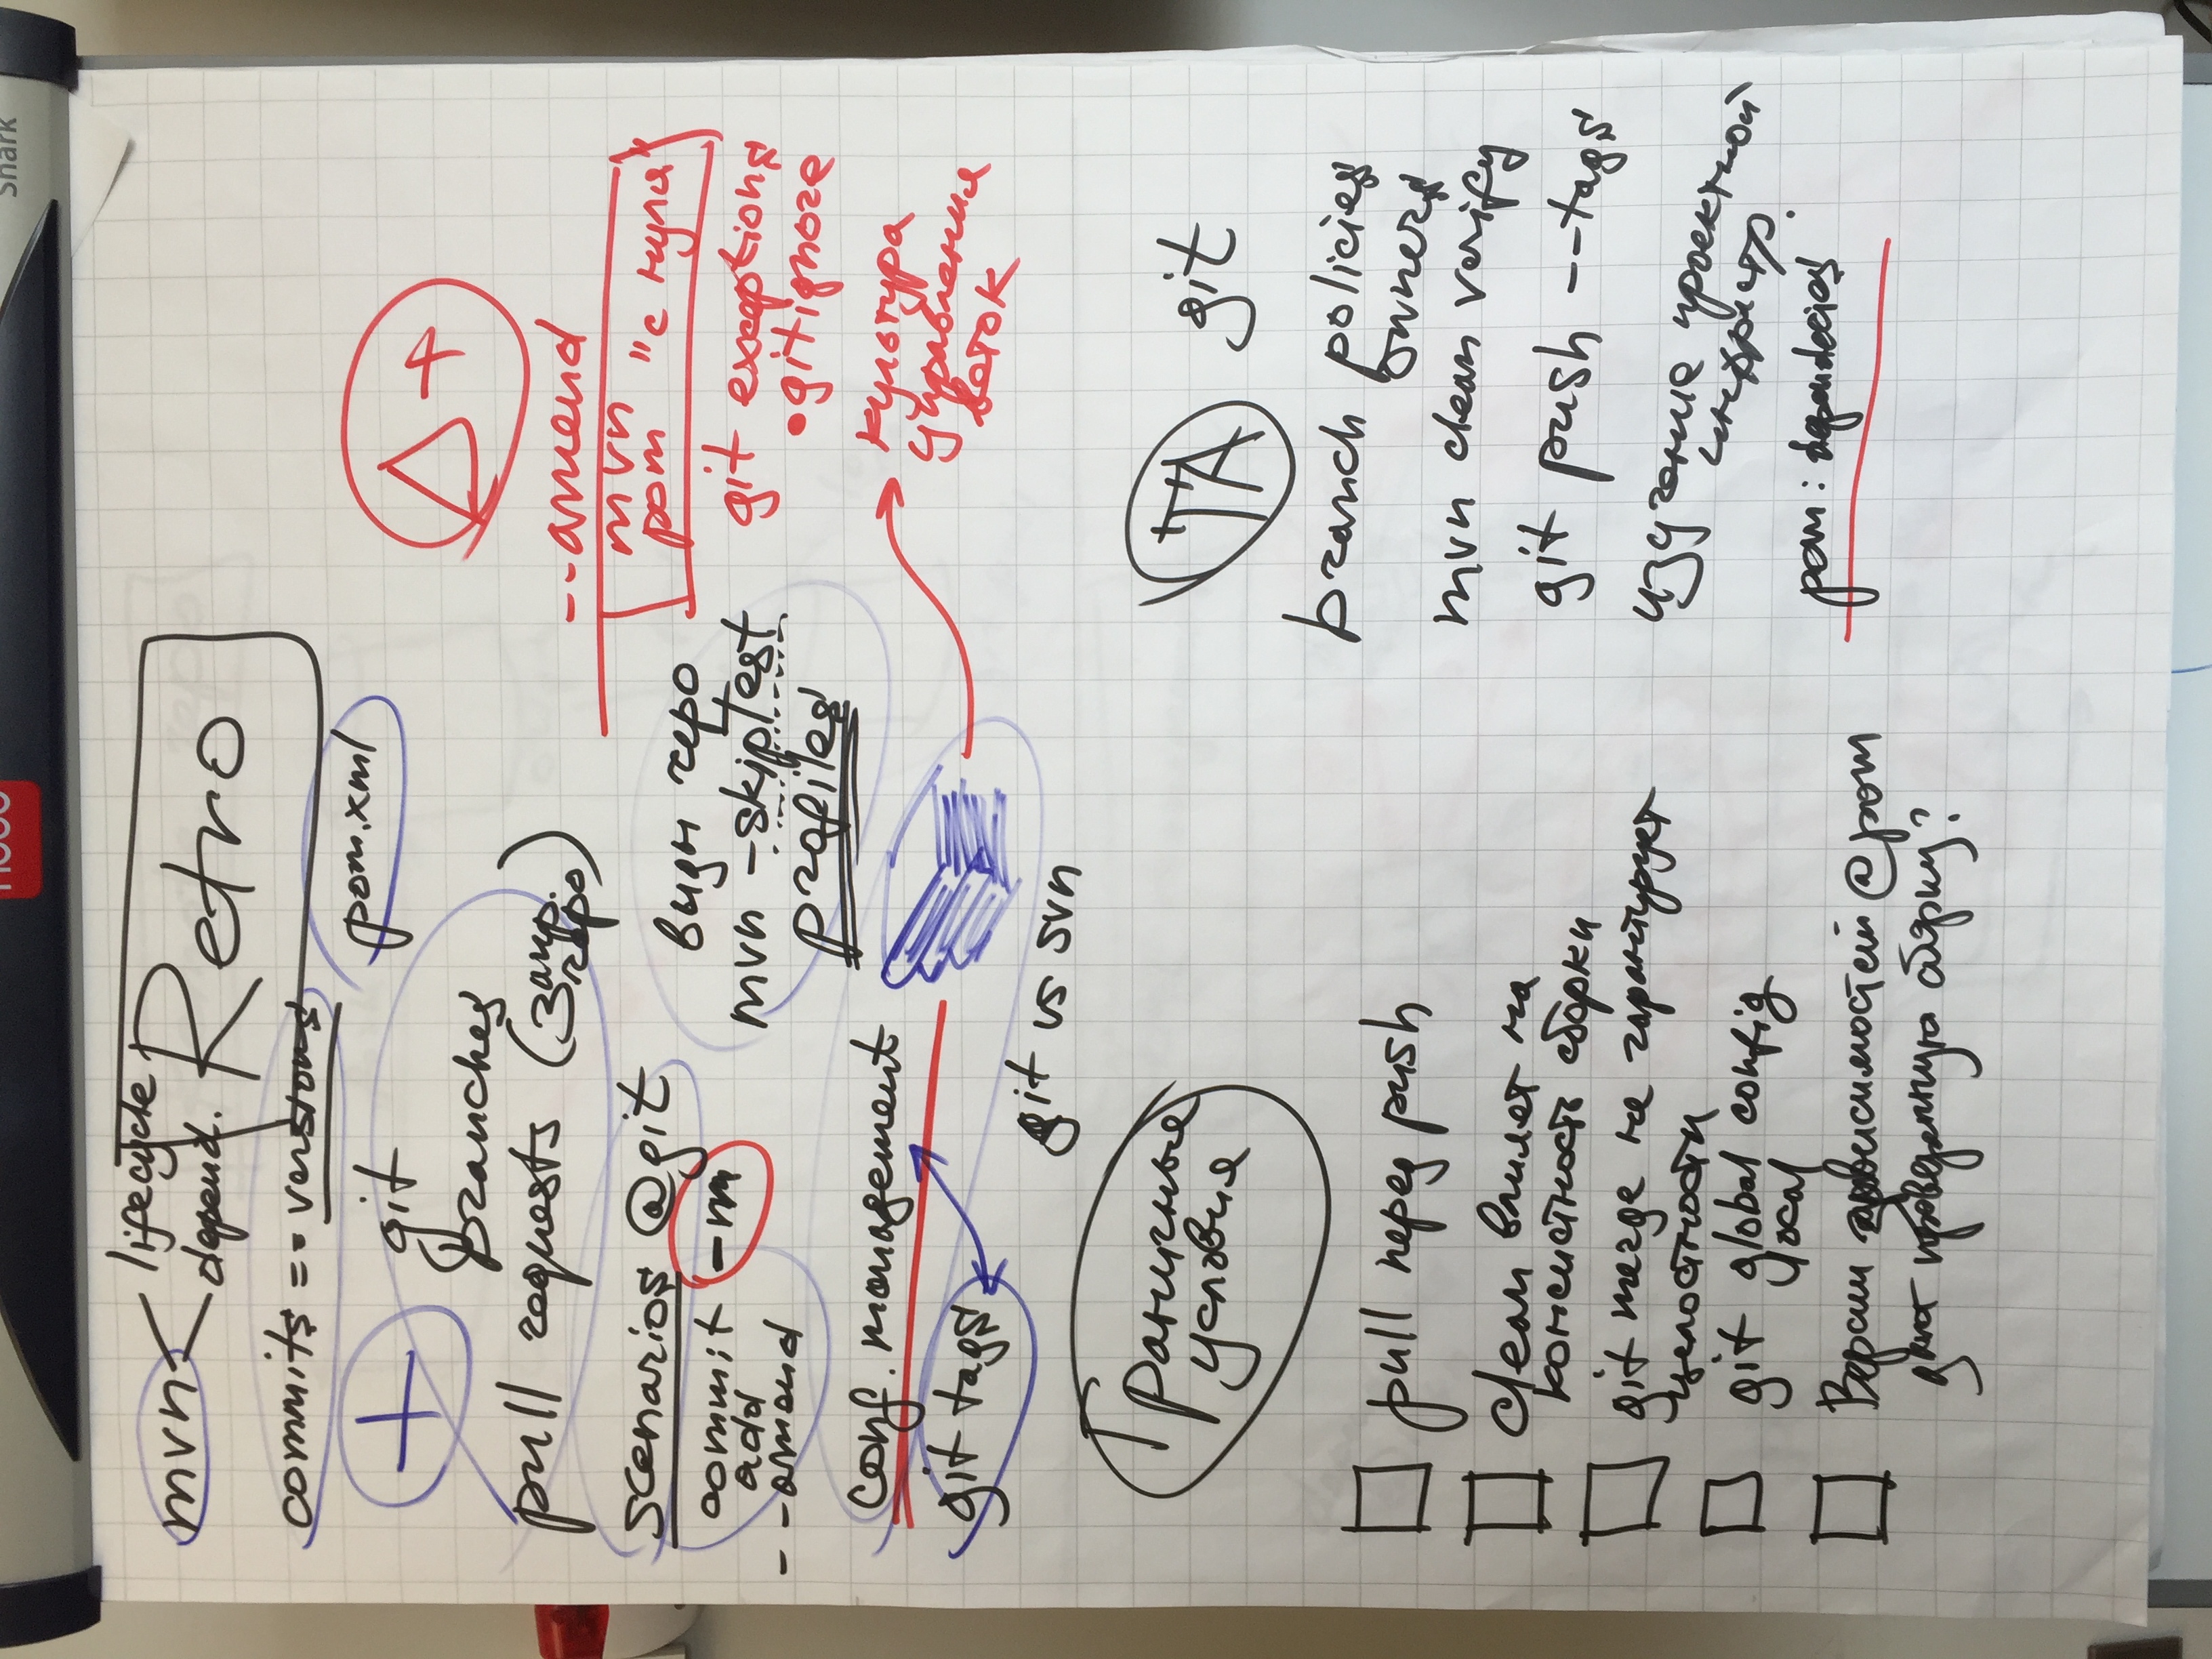 nobo
Shark
mvn
lifecycle
depend.
Retro
commits == versions
pom.xml
+
git
branches
pull requests (запр.
репо)
scenarios @git
commit -m
add
--amend
виды репо
mvn -skipTest
profiles
conf. management
git tags
git vs svn
Δ+
--amend
mvn
pom "с нуля"
git exceptions
.gitignore
культура
управления
веток
Граничные
условия
pull перед push
clean влияет на
консистность сборки
git merge не гарантирует
целостности
git global config
local
Версии зависимостей @pom
дают сборку?
TA git
branch policies
owners
mvn clean verify
git push --tags
изучение проектной
инфрастр.
pom: dependecies